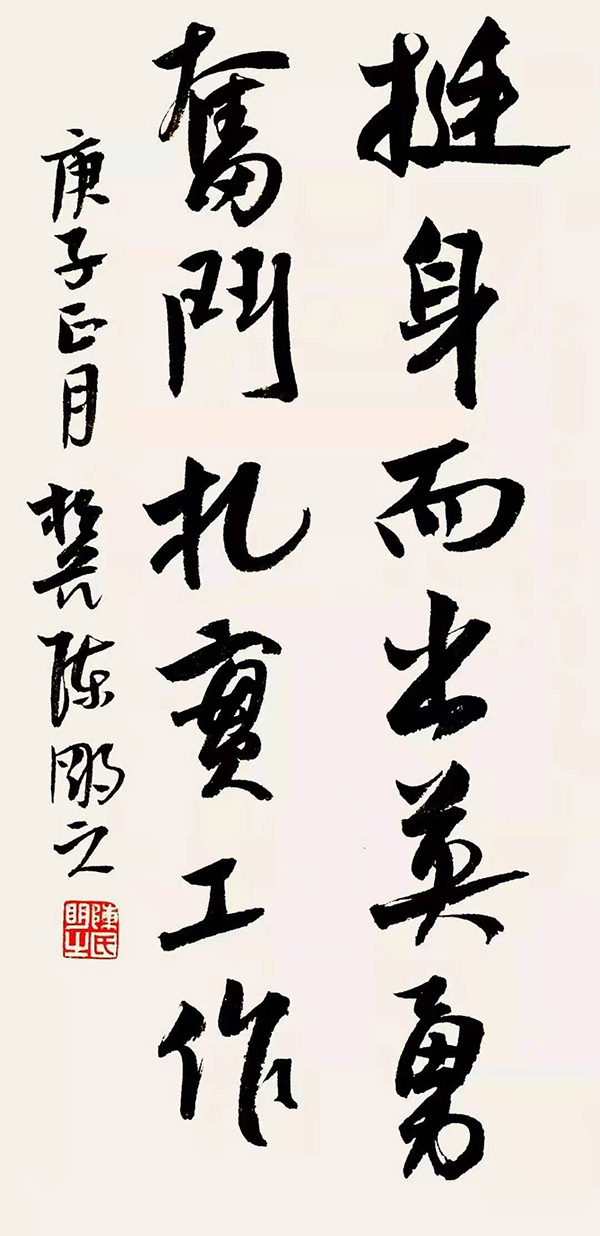 挺身而出英勇
奮鬥扎實工作
庚子正月 陈明之
陳氏明之